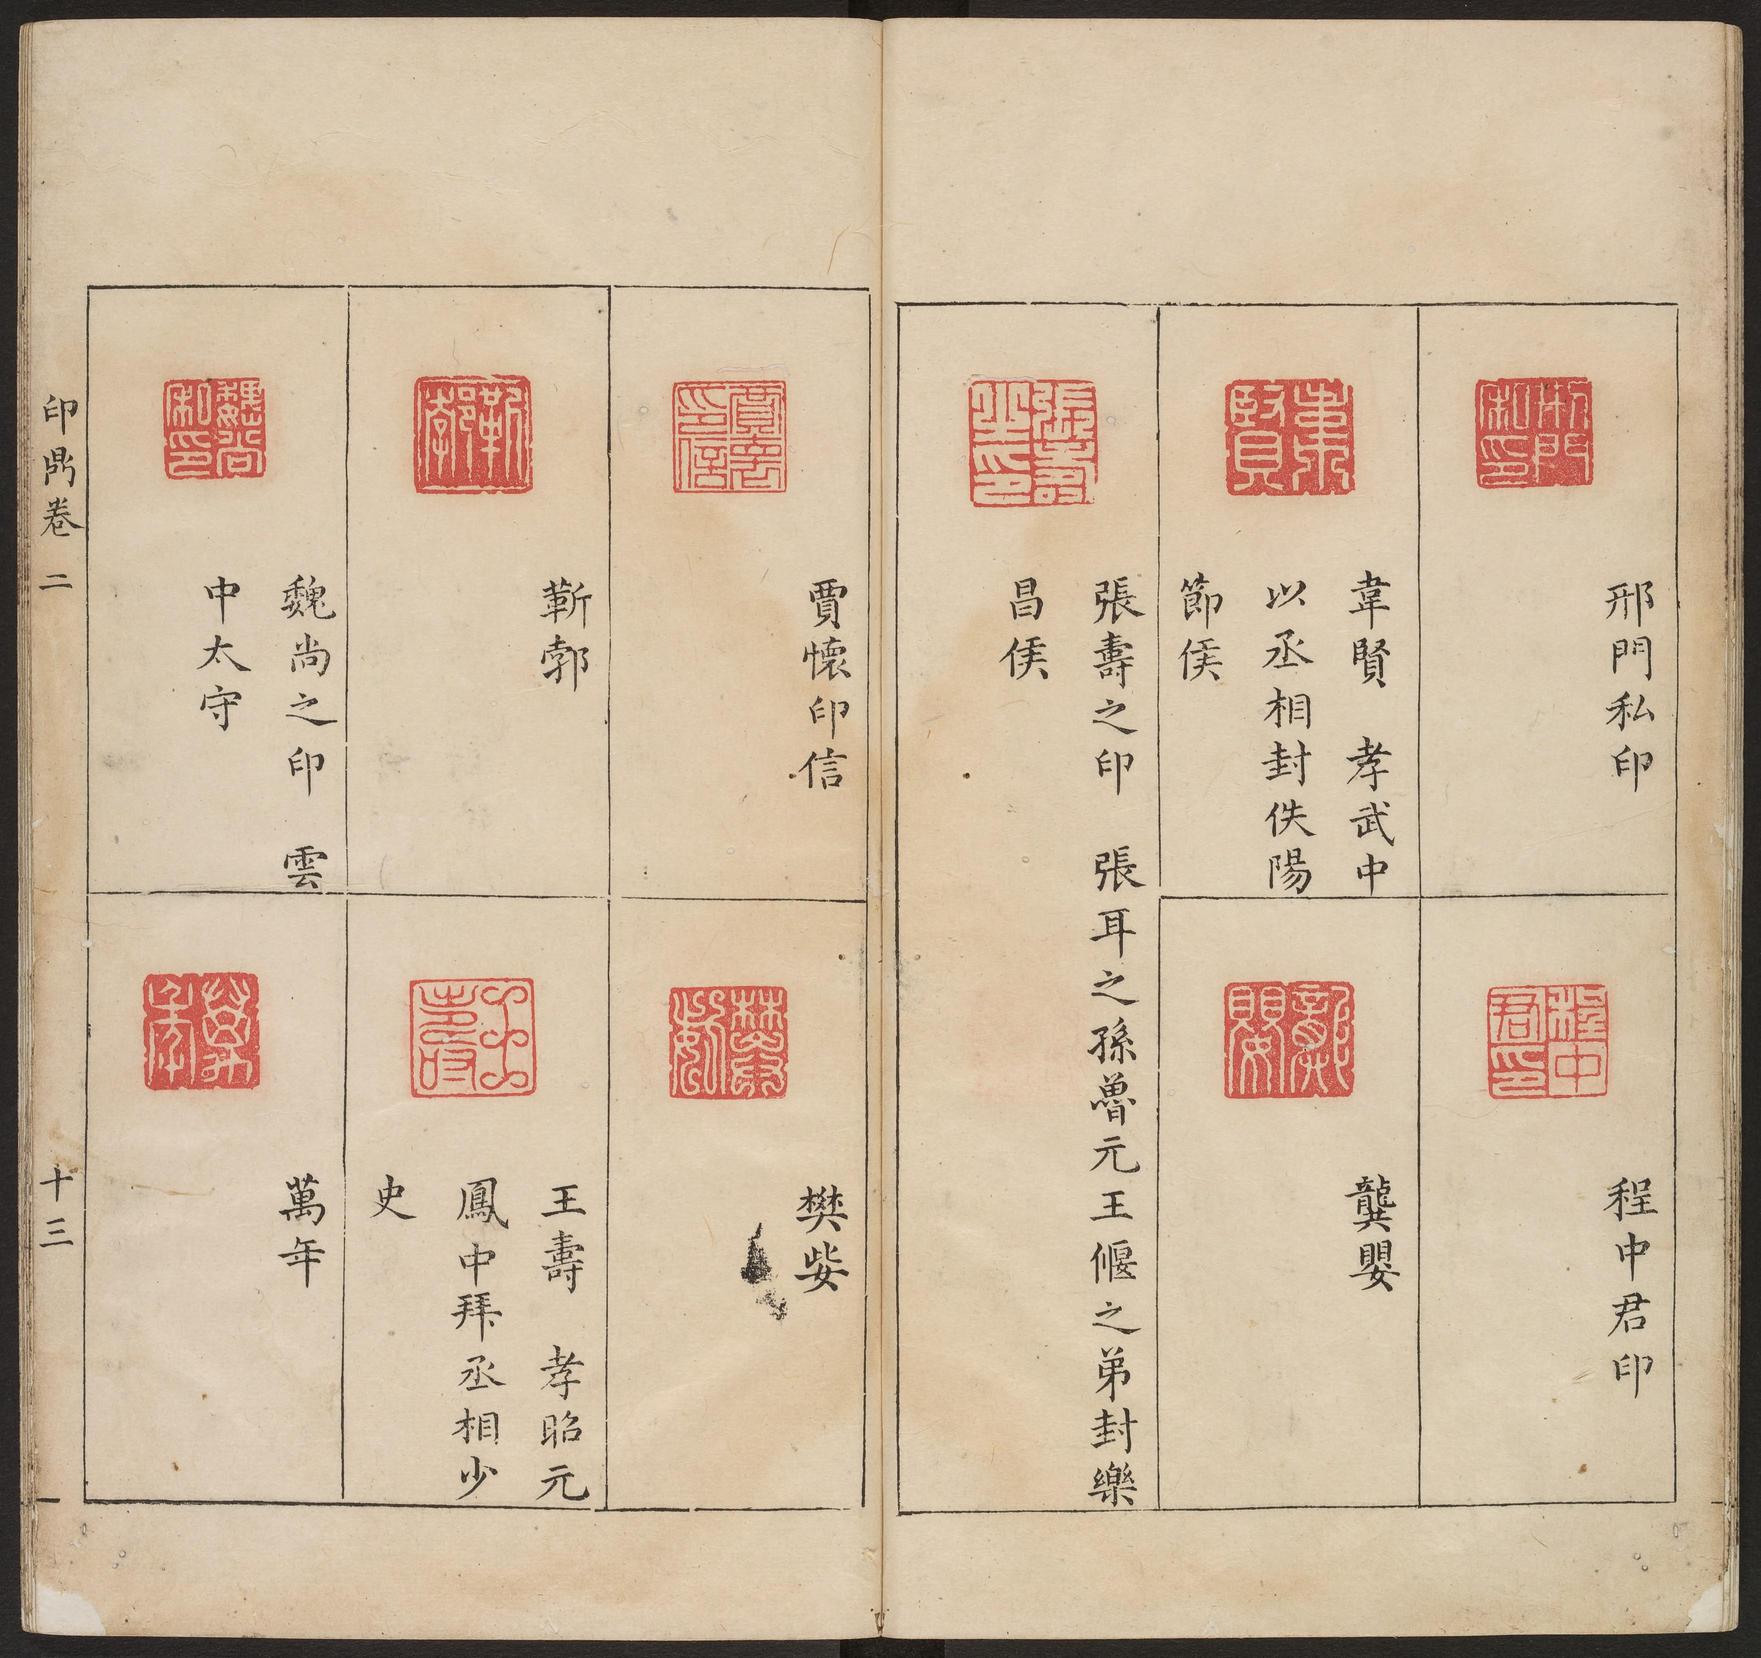 邢門私印
程中君印
韋賢　孝武中
以丞相封佚陽
節侯
龔嬰
張壽之印　張耳之孫魯元王偃之弟封樂
昌侯
賈懷印信
樊㛐
靳郭
王壽　孝昭元
鳳中拜丞相少
史
魏尚之印　雲
中太守
萬年
印鼎卷二
十三